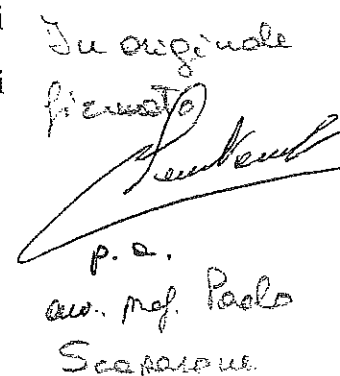 i
i
In originale
firmato
p. a.
avv. prof. Paolo
Scaparone